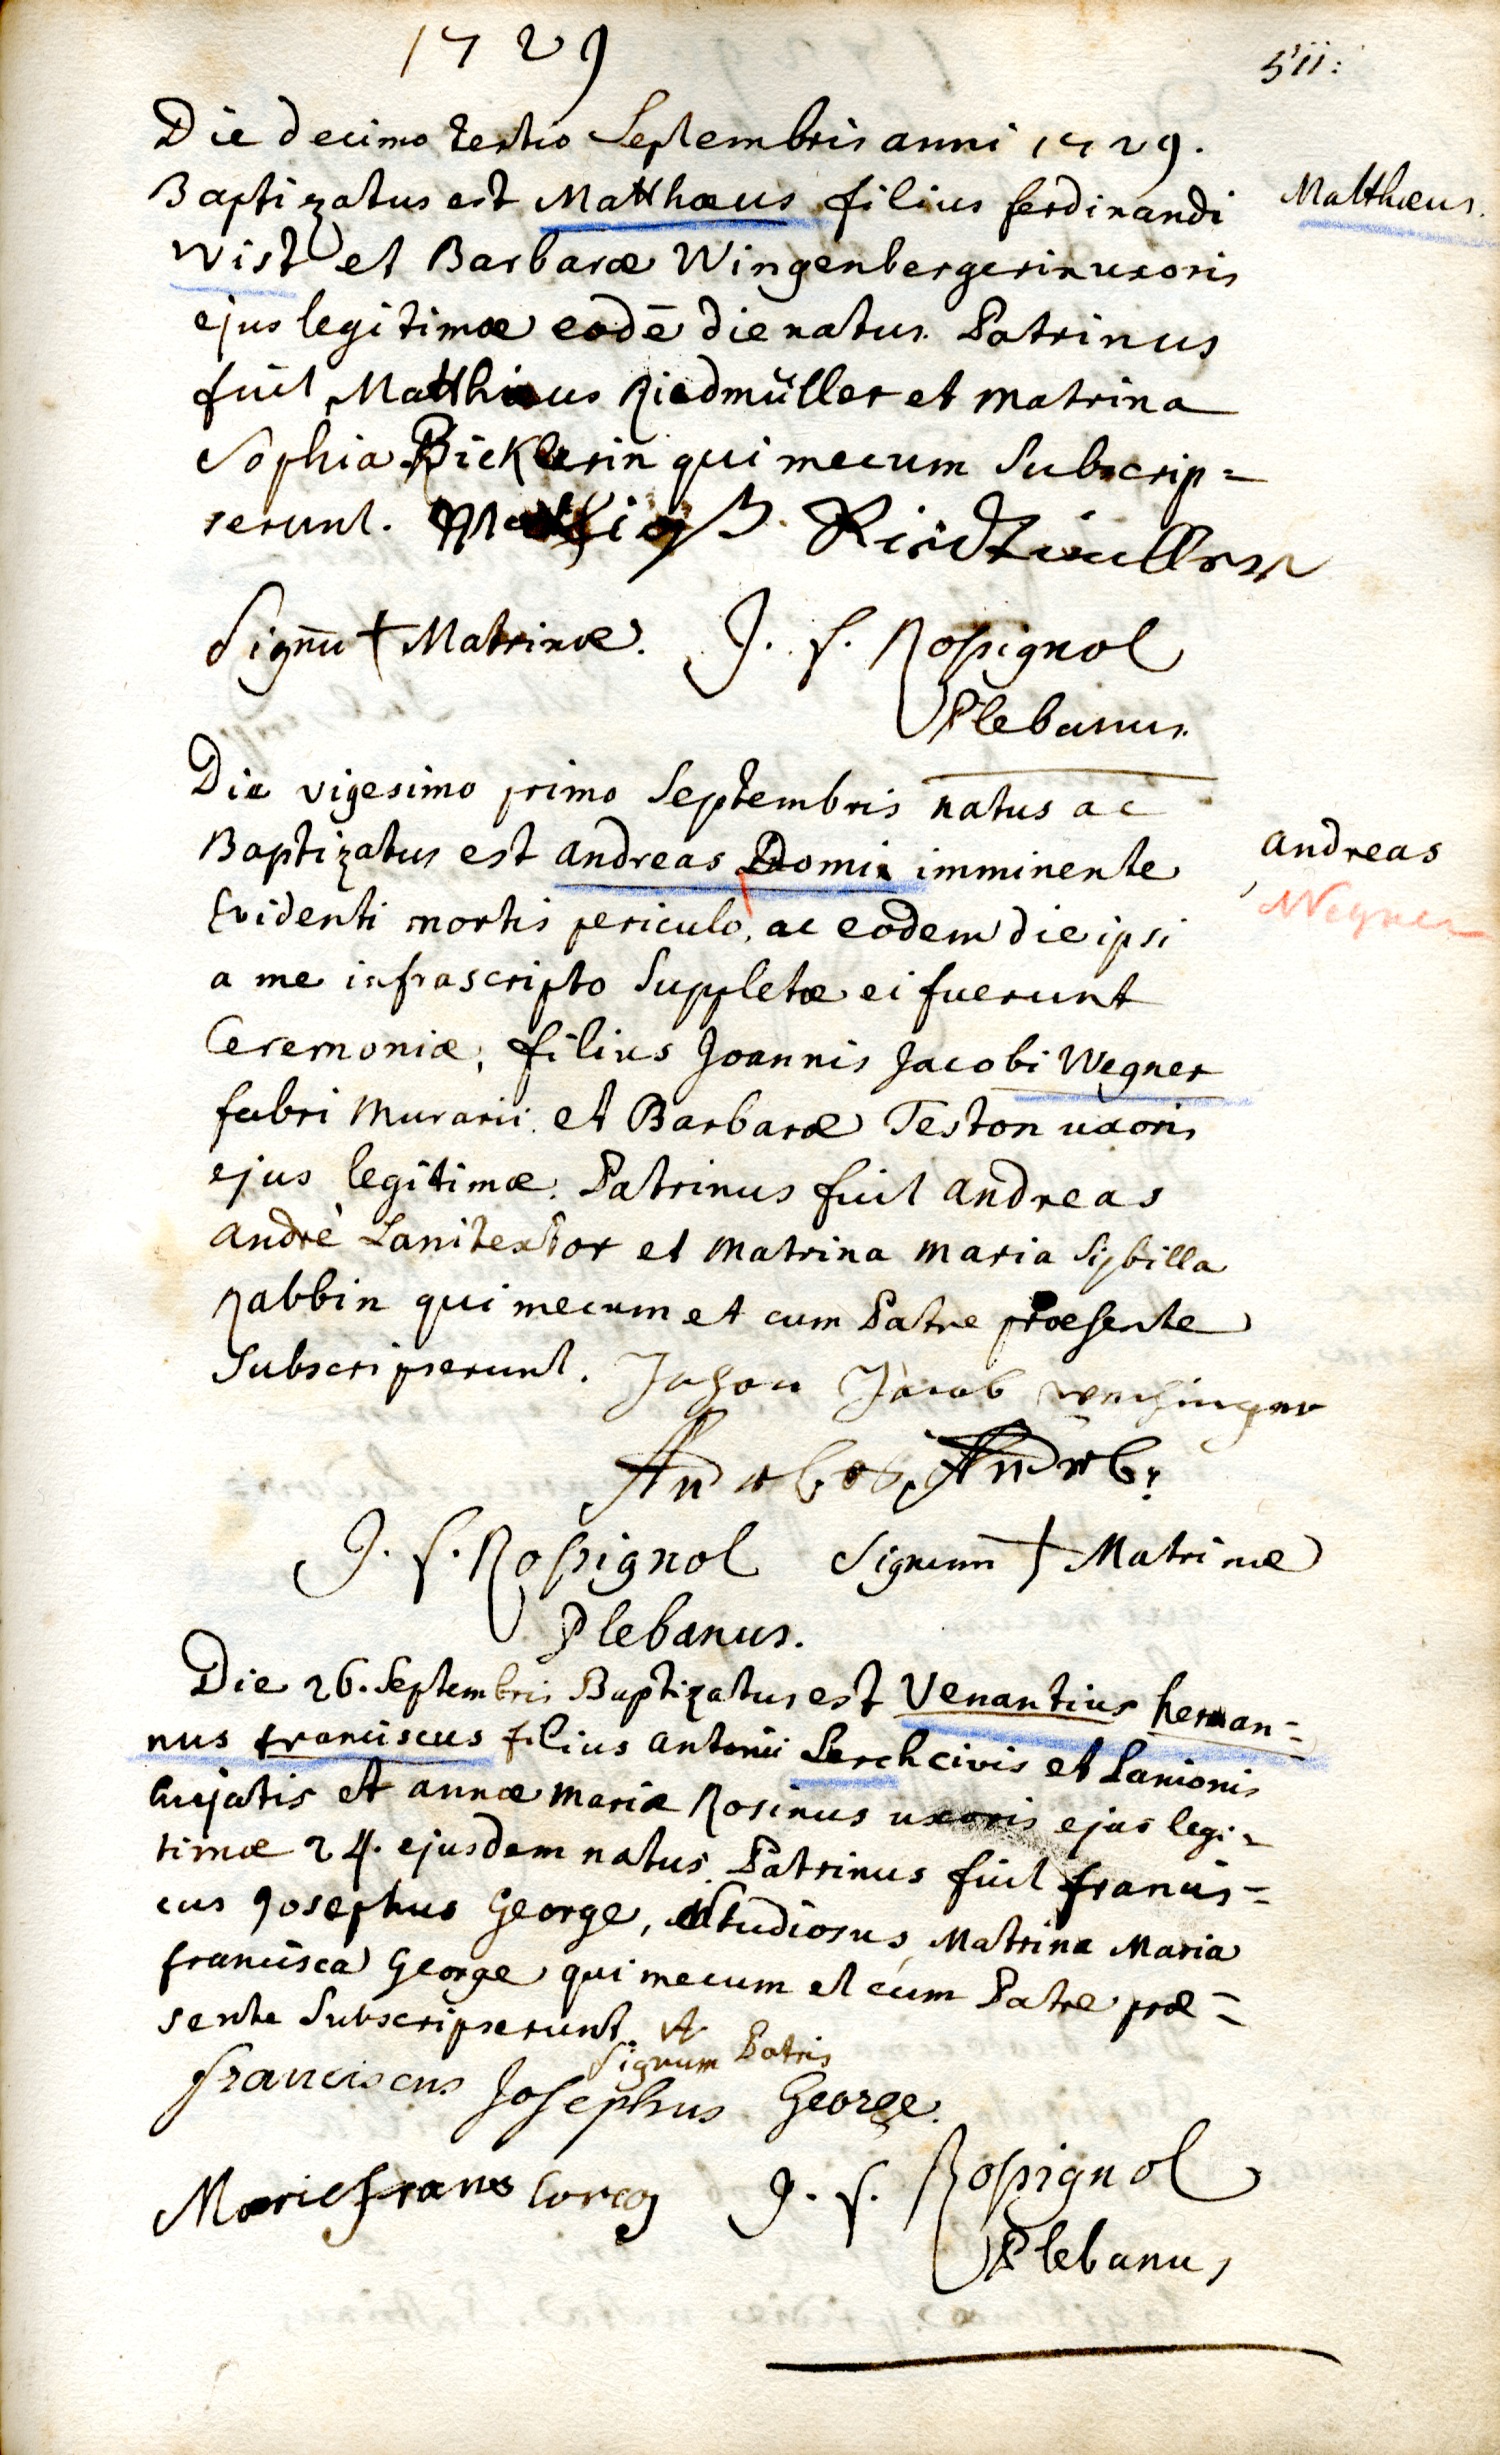 1729
511:
Die decimo tertio Septembris anni 1729.
Baptizatus est Matthæus filius ferdinandi
Matthæus.
Wist et Barbaræ Wingenbergerin uxoris
ejus legitimæ eodē die natus. Patrinus
fuit Matthæus Riedmüller et matrina
Sophia Bicklerin qui mecum Subscrip=
serunt. Riedmüller
Signū + Matrinæ. J. f. Rossignol
Plebanus.
Die vigesimo primo Septembris natus ac
Baptizatus est andreas Domi imminente
andreas
Evidenti mortis periculo, ac eodem die ipsi
Wegner
a me infrascripto Suppletæ ei fuerunt
Ceremoniæ, filius Joannis Jacobi Wegner
fabri Murarii et Barbaræ Teston uxoris
ejus legitimæ. Patrinus fuit andreas
andrè Lanitextor et matrina maria Sibilla
Rabbin qui mecum et cum Patre præsente
Subscripserunt. Johan Jacob
J. f. Rossignol Signum + Matrinæ
Plebanus.
Die 26. Septembris Baptizatus est Venantius herman=
nus franciscus filius antonii Lerch civis et Lanionis
hujatis et annæ mariæ Rosinus uxoris ejus legi=
timæ 24. ejusdem natus. Patrinus fuit francis=
cus Josephus George, Studiosus, Matrina Maria
francisca George qui mecum et cum Patre præ=
sente Subscripserunt.
Signum Patris
franciscus Josephus George.
J. f. Rossignol
Plebanus